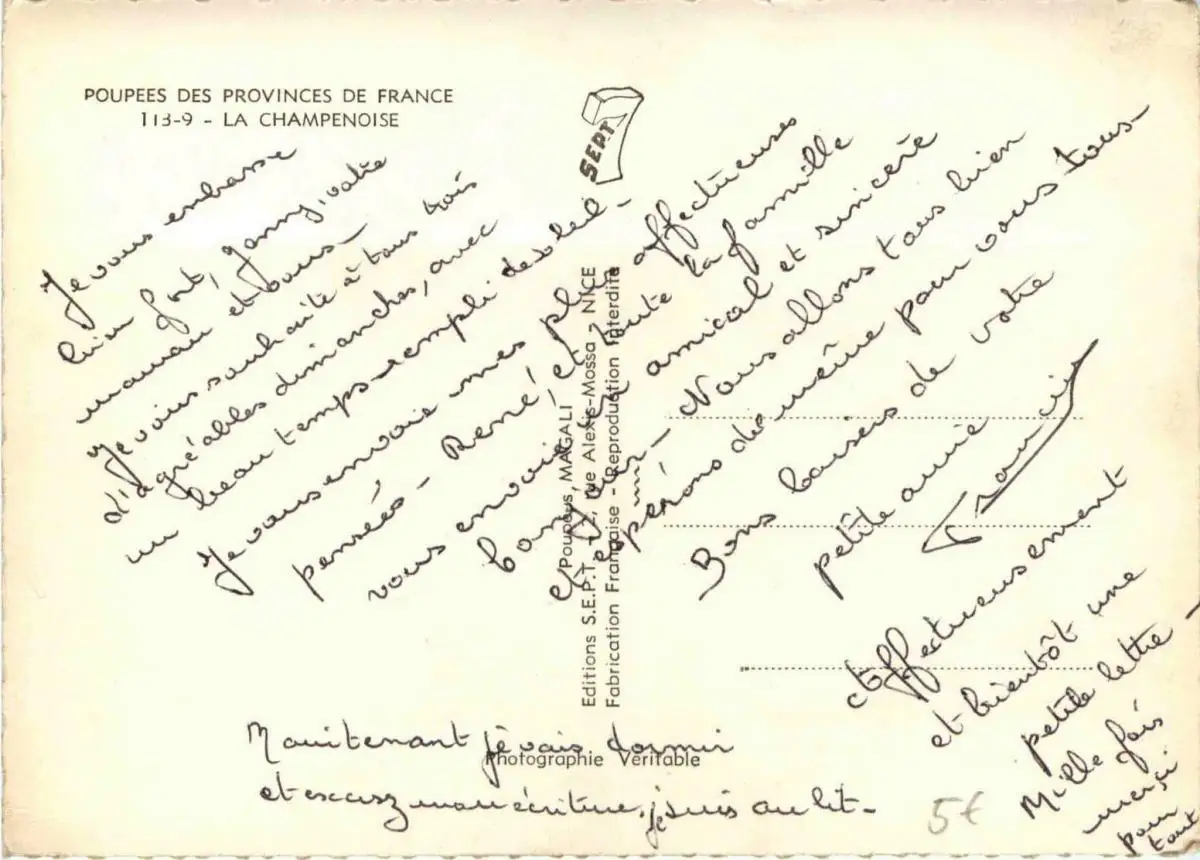 POUPEES DES PROVINCES DE FRANCE
113-9 - LA CHAMPENOISE
SEPT
Je vous embrasse
bien fort, Jany, votre
maman et vous -
Je vous souhaite à tous trois
d'agréables dimanches, avec
un beau temps rempli de soleil -
Je vous envoie mes plus affectueuses
pensées - René et toute la famille
vous envoie un amical et sincère
bonjour - Nous allons tous bien
espérons de même pour vous tous -
Bons baisers de votre
petite amie
Francis
Affectueusement
et bientôt une
petite lettre -
Mille fois
merçi
pour
tout
Maintenant je vais dormir
et excusez mon écriture, je suis au lit -
Poupées MAGALI
Editions S.E.P.T. - rue Alexis-Mossa - NICE
Fabrication Française - Reproduction Interdite
Photographie Véritable
5€